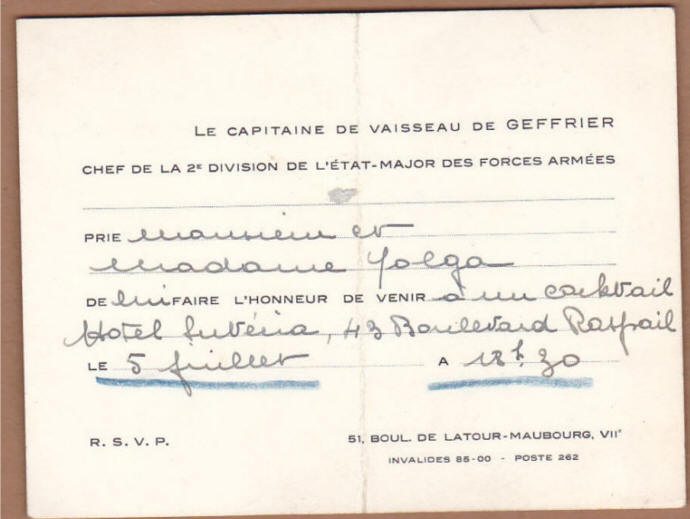 LE CAPITAINE DE VAISSEAU DE GEFFRIER
CHEF DE LA 2E DIVISION DE L'ÉTAT-MAJOR DES FORCES ARMÉES
PRIE Monsieur et
Madame Yolga
DE lui FAIRE L'HONNEUR DE VENIR à un cocktail
Hotel Lutétia, 43 Boulevard Raspail
LE 5 juillet A 18h.30
R. S. V. P.
51, BOUL. DE LATOUR-MAUBOURG, VIIe
INVALIDES 85-00 - POSTE 262